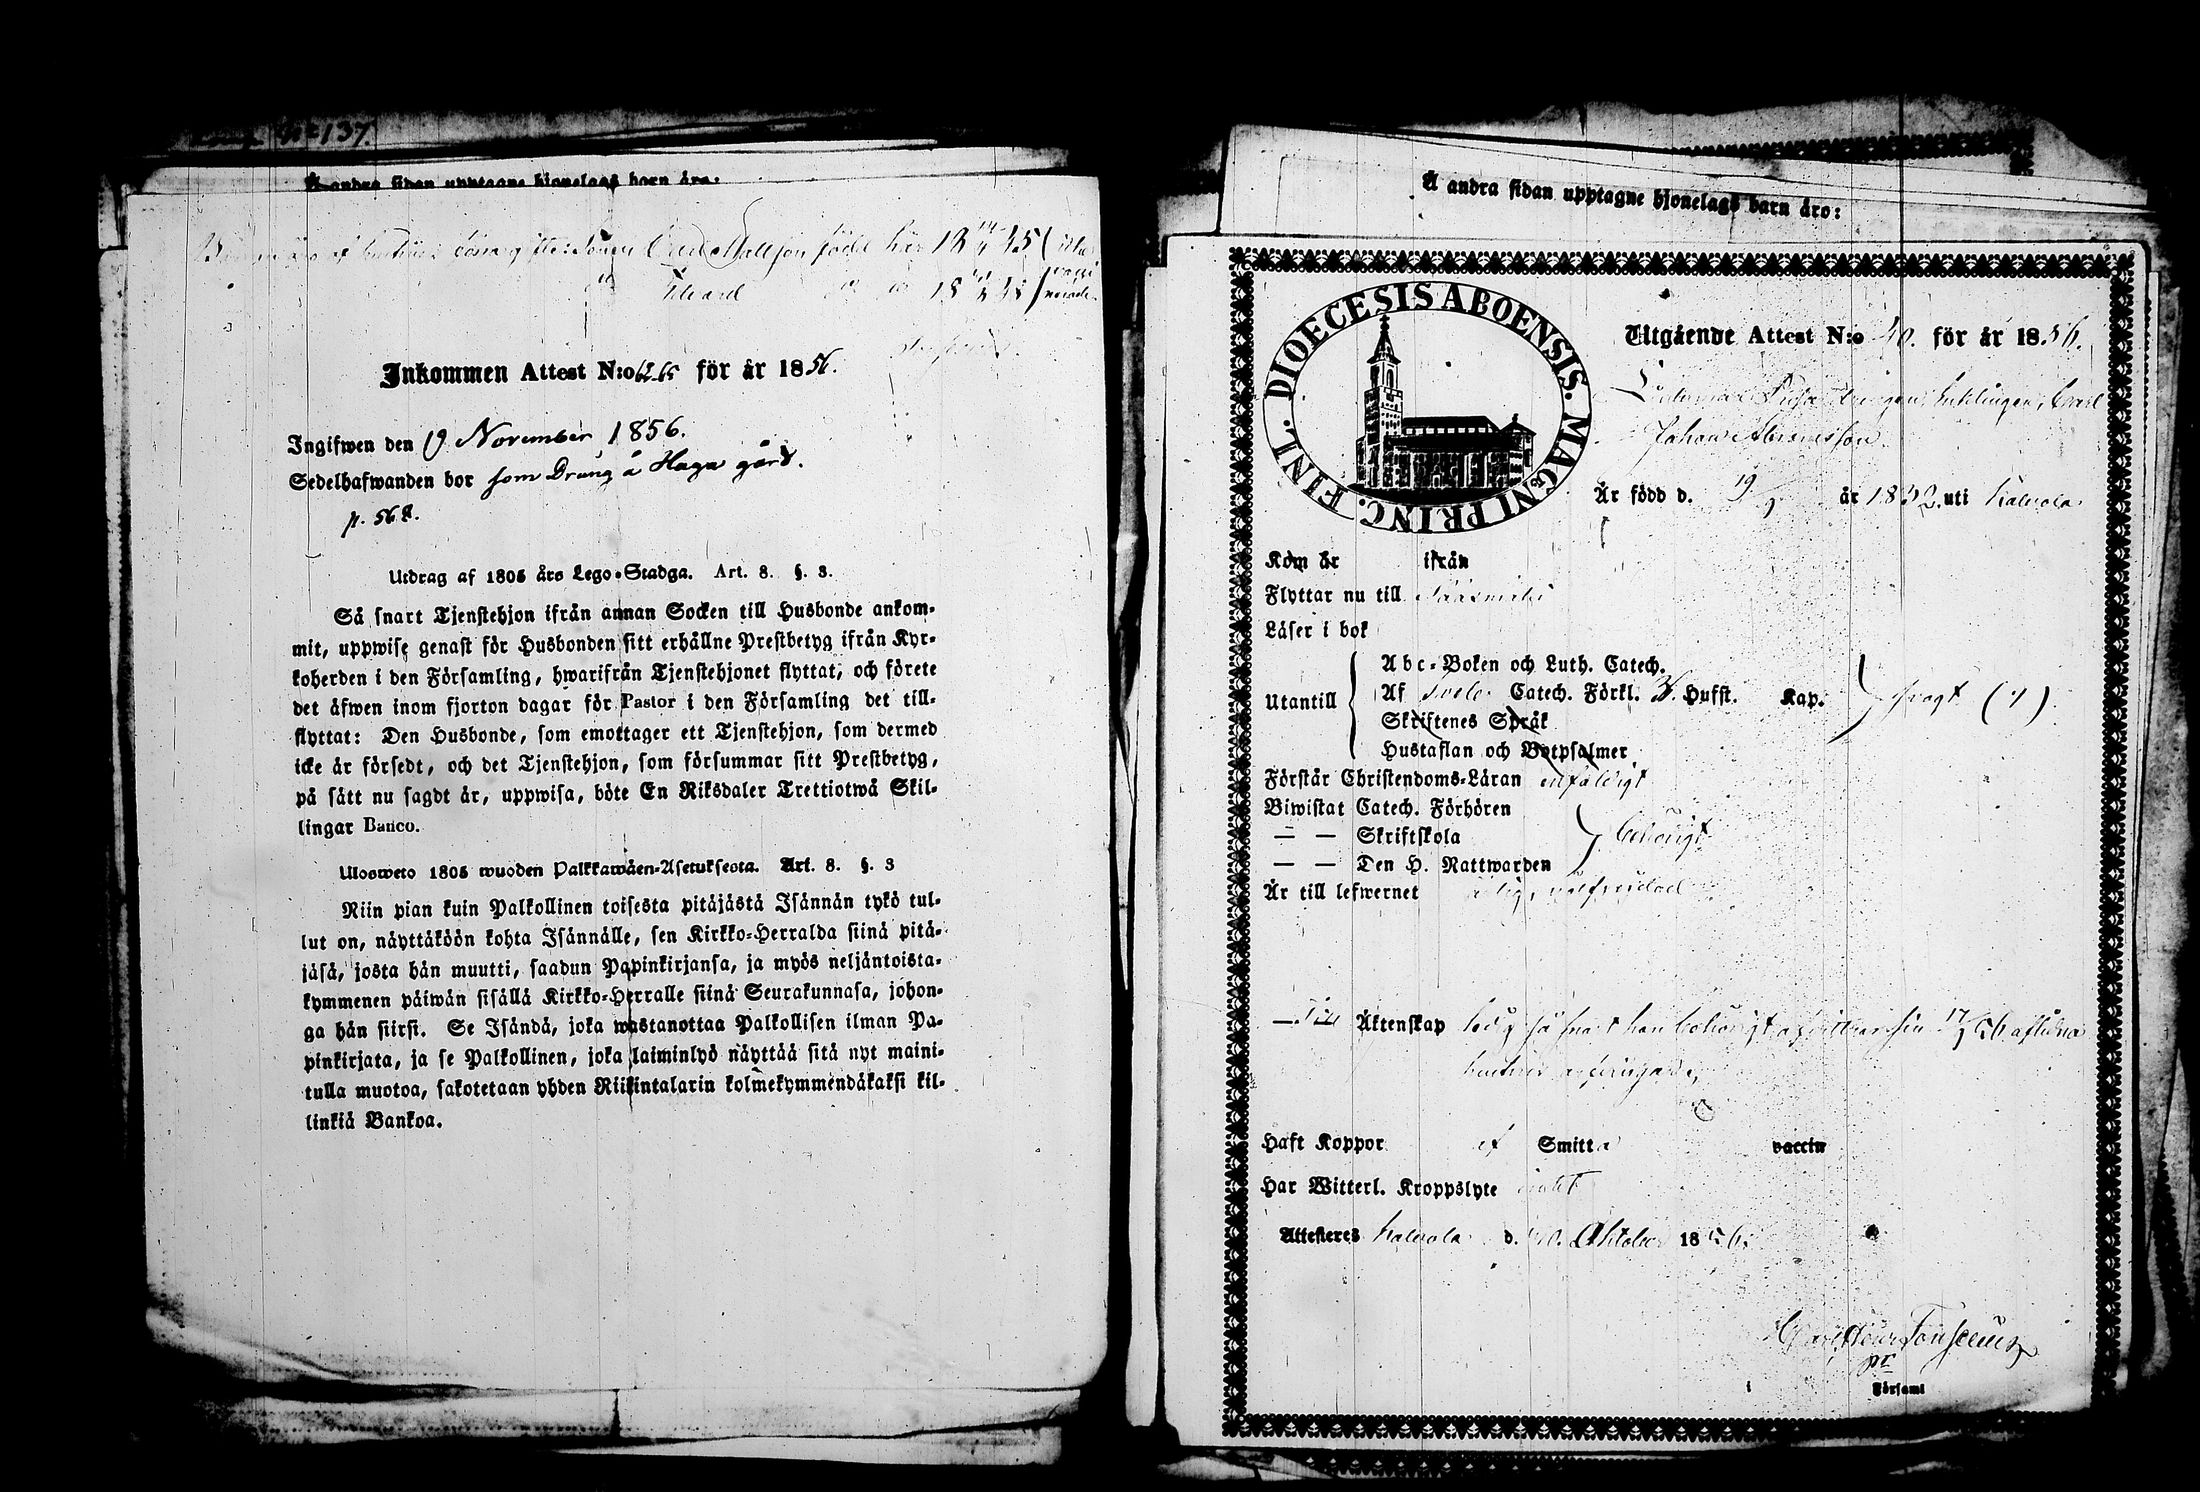 № 137.
Å andra sidan upptagne hjonelags barn äro:
Mattsson född här 18 45
Edvard do do 18
Inkommen Attest N:o 62-65 för år 1856.
Ingifwen den 19 November 1856.
Sedelhafwanden bor som Dräng å Haga gård.
p. 568.
Utdrag af 1805 års Lego-Stadga. Art. 8. §. 3.
Så snart Tjenstehjon ifrån annan Socken till Husbonde ankom-
mit, uppwise genast för Husbonden sitt erhållne Prestbetyg ifrån Kyr-
koherden i den Församling, hwarifrån Tjenstehjonet flyttat, och förete
det äfwen inom fjorton dagar för Pastor i den Församling det till-
flyttat: Den Husbonde, som emottager ett Tjenstehjon, som dermed
icke är försedt, och det Tjenstehjon, som försummar sitt Prestbetyg,
på sätt nu sagdt är, uppwisa, böte En Riksdaler Trettiotwå Skil-
lingar Banco.
Ulosweto 1805 wuoden Palkkawäen-Asetuksesta. Art. 8. §. 3
Niin pian kuin Palkollinen toisesta pitäjästä Isännän tykö tul-
lut on, näyttäköön kohta Isännälle, sen Kirkko-Herralda siinä pitä-
jäsä, josta hän muutti, saadun Papinkirjansa, ja myös neljäntoista-
kymmenen päiwän sisällä Kirkko-Herralle siinä Seurakunnasa, johon-
ga hän siirsi. Se Isändä, joka wastanottaa Palkollisen ilman Pa-
pinkirjata, ja se Palkollinen, joka laiminlyö näyttää sitä nyt maini-
tulla muotoa, sakotetaan yhden Riikintalarin kolmekymmendäkaksi kil-
linkiä Bankoa.
Å andra sidan upptagne hjonelags barn äro:
DIOECESIS ABOENSIS. MAGNI PRINC. FINL.
Utgående Attest N:o 40. för år 1856.
Drängen, Enklingen, Carl
Johan Abramsson
Är född d. 19 år 1832. uti Kalvola
Kom år ifrån
Flyttar nu till Sääsmäki
Läser i bok
Utantill
Abc-Boken och Luth. Catech.
Af Svebe. Catech. Förkl. 3. Hufst. Kap. svagt
Skriftenes Språk
Hustaflan och Botpsalmer
Förstår Christendoms-Läran enfaldigt
Biwistat Catech. Förhören
— — Skriftskola behörigt
— — Den H. Nattwarden
Är till lefwernet ärlig, välfrejdad
— Till Äktenskap ledig så snart han behörigt afvittrar sin 56 aflidna
hustrus arfvingar
Haft Koppor ej Smitt a vaccin
Har Witterl. Kroppslyte intet
Attesteres Kalvola d. Oktober 1856.
pr
i Församl